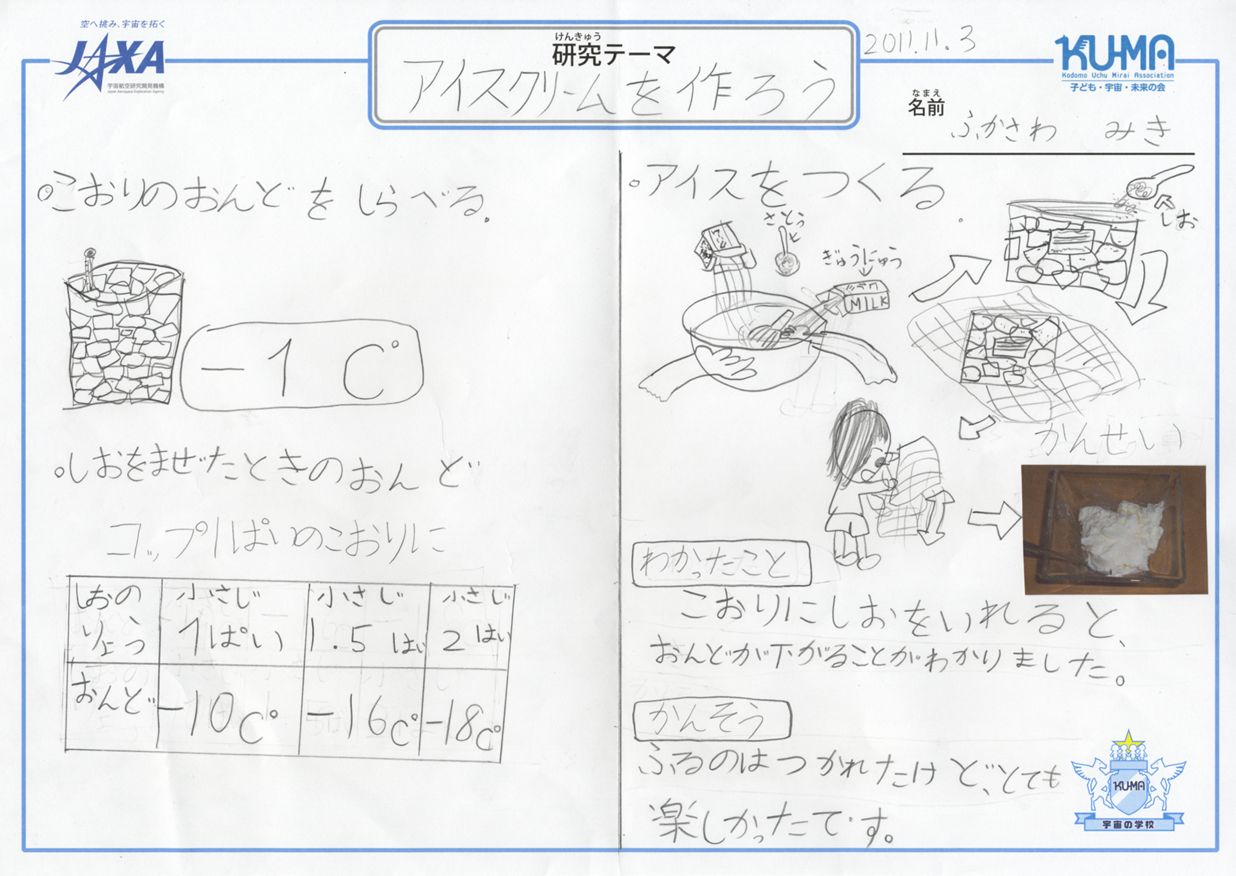 空へ挑み、宇宙を拓く
JAXA
宇宙航空研究開発機構
Japan Aerospace Exploration Agency
けんきゅう
研究テーマ
アイスクリームを作ろう
2011.11.3
KU-MA
Kodomo Uchu Mirai Association
子ども・宇宙・未来の会
なまえ
名前
ふかさわ みき
。こおりのおんどをしらべる。
-1 C°
。しおをまぜたときのおんど
コップ1ぱいのこおりに
しおのりょう 小さじ1ぱい 小さじ1.5はい 小さじ2はい
おんど -10C° -16C° -18C°
。アイスをつくる。
さとう
ぎゅうにゅう
MILK
しお
かんせい
わかったこと
こおりにしおをいれると、
おんどが下がることがわかりました。
かんそう
ふるのはつかれたけど、とても
楽しかったです。
KU-MA
宇宙の学校